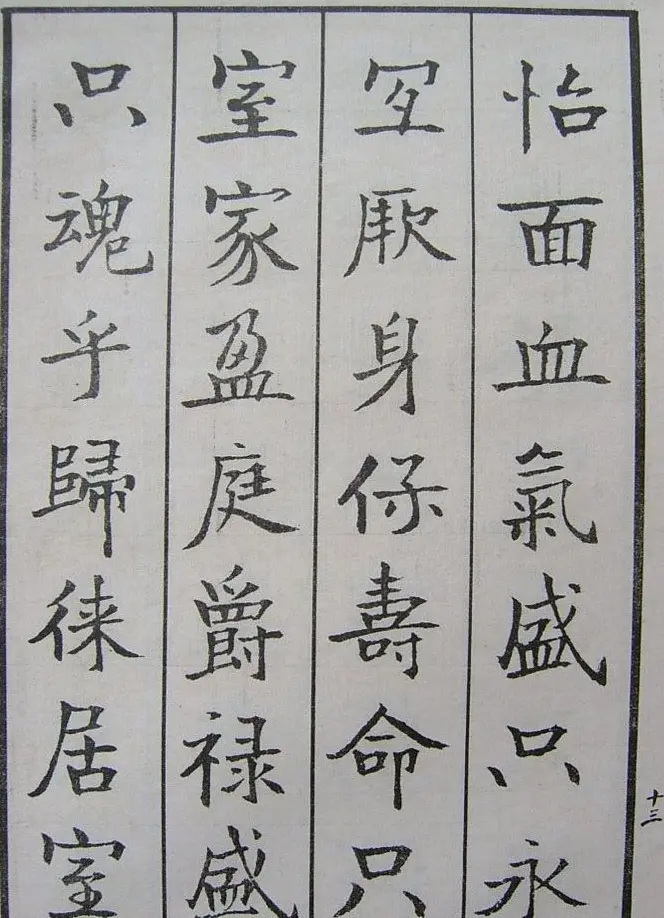 怡面血氣盛只永
冝厥身保壽命只
室家盈庭爵禄盛
只魂乎歸徕居室
十三